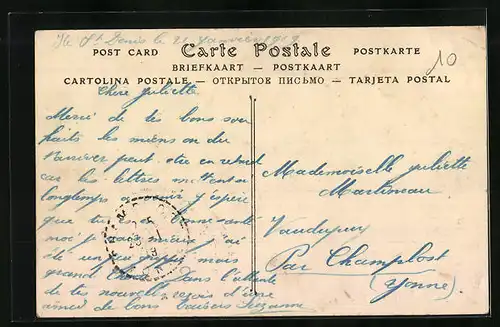 Ile St Denis le 21 Janvier 1919
POST CARD Carte Postale POSTKARTE
BRIEFKAART — POSTKAART
CARTOLINA POSTALE — ОТКРЫТОЕ ПИСЬМО — TARJETA POSTAL
10
Chère Juliette
Merci de tes bons sou
haits les miens on du
t'arriver peut être en retard
car les lettres mettent
longtemps a venir j'espère
que tu es en bonne santé
moi je vais mieux j'ai
été un peu grippé mais
grand chose Dans l'attente
de tes nouvelles reçois d'une
amie de bons baisers Suzanne
Mademoiselle Juliette
Martineau
Vaudupuy
Par Champlost
(Yonne)